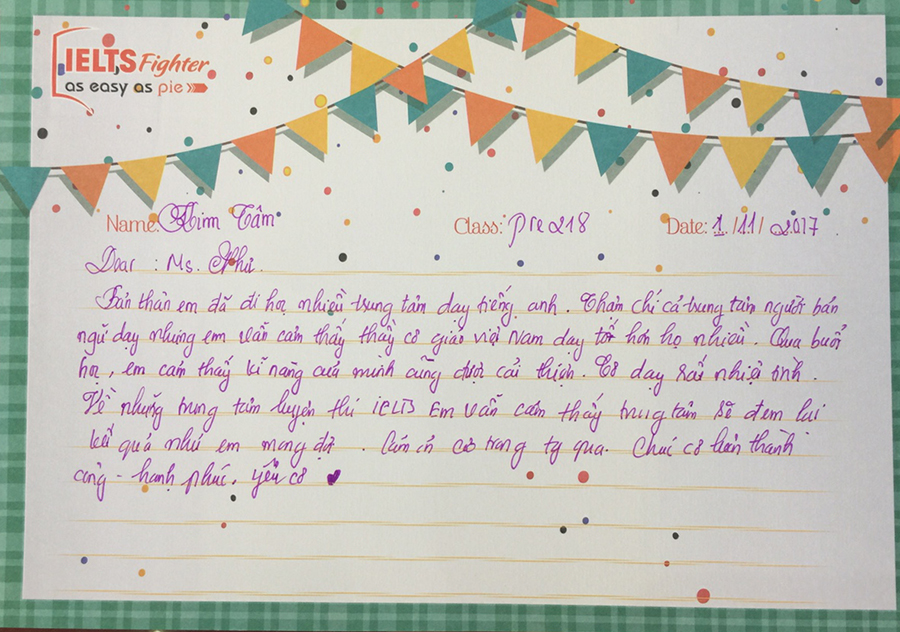 IELTS Fighter
as easy as pie
Name: Kim Tâm Class: pre218 Date: 1/11/2017
Dear : Ms. Như.
Bản thân em đã đi học nhiều trung tâm dạy tiếng anh. Thậm chí cả trung tâm người bản
ngữ dạy nhưng em vẫn cảm thấy thầy cô giáo việt Nam dạy tốt hơn họ nhiều. Qua buổi
học, em cảm thấy kĩ năng của mình cũng được cải thiện. Cô dạy rất nhiệt tình.
Về những trung tâm luyện thi iELTS Em vẫn cảm thấy trung tâm sẽ đem lại
kết quả như em mong đợi. Cám ơn cô trong tg qua. Chúc cô luôn thành
công - hạnh phúc. yêu cô